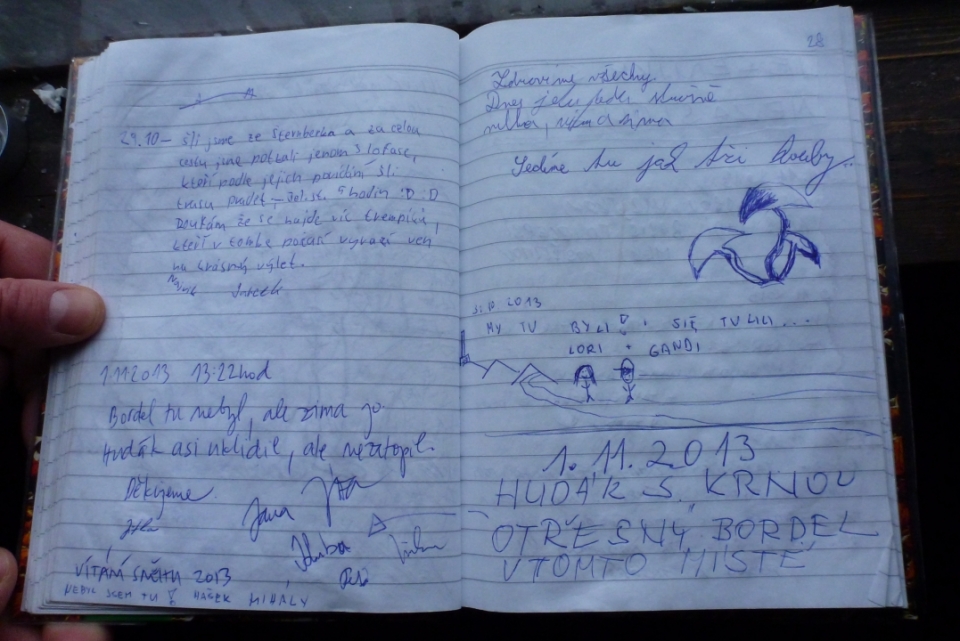 29.10 – šli jsme ze Šternberka a za celou
cestu jsme potkali jenom 3 lofase,
kteří podle jejich povídání šli
trasu Praděd – hodin :D :D
Doufám že se najde víc trempíků,
kteří v tomhle počasí vyrazí ven
na krásný výlet.
1.11.2013 13:22hod
Bordel tu nebyl, ale zima jo
Hudák asi uklidil, ale nezatopil.
Děkujeme
Jitka
Jana
VÍTÁNÍ SNĚHU 2013
NEBYL JSEM TU HAŠEK MIHÁLY
28
Zdravíme všechny.
Dnes je tu
mlha, zima
Sedíme tu jak tři houby..
2013
MY TU BYLI ! SIĘ TULILI...
LORI + GANDI
1. 11. 2013
HUDÁK S. KRNOV
OTŘESNÝ BORDEL
V TOMTO MÍSTĚ